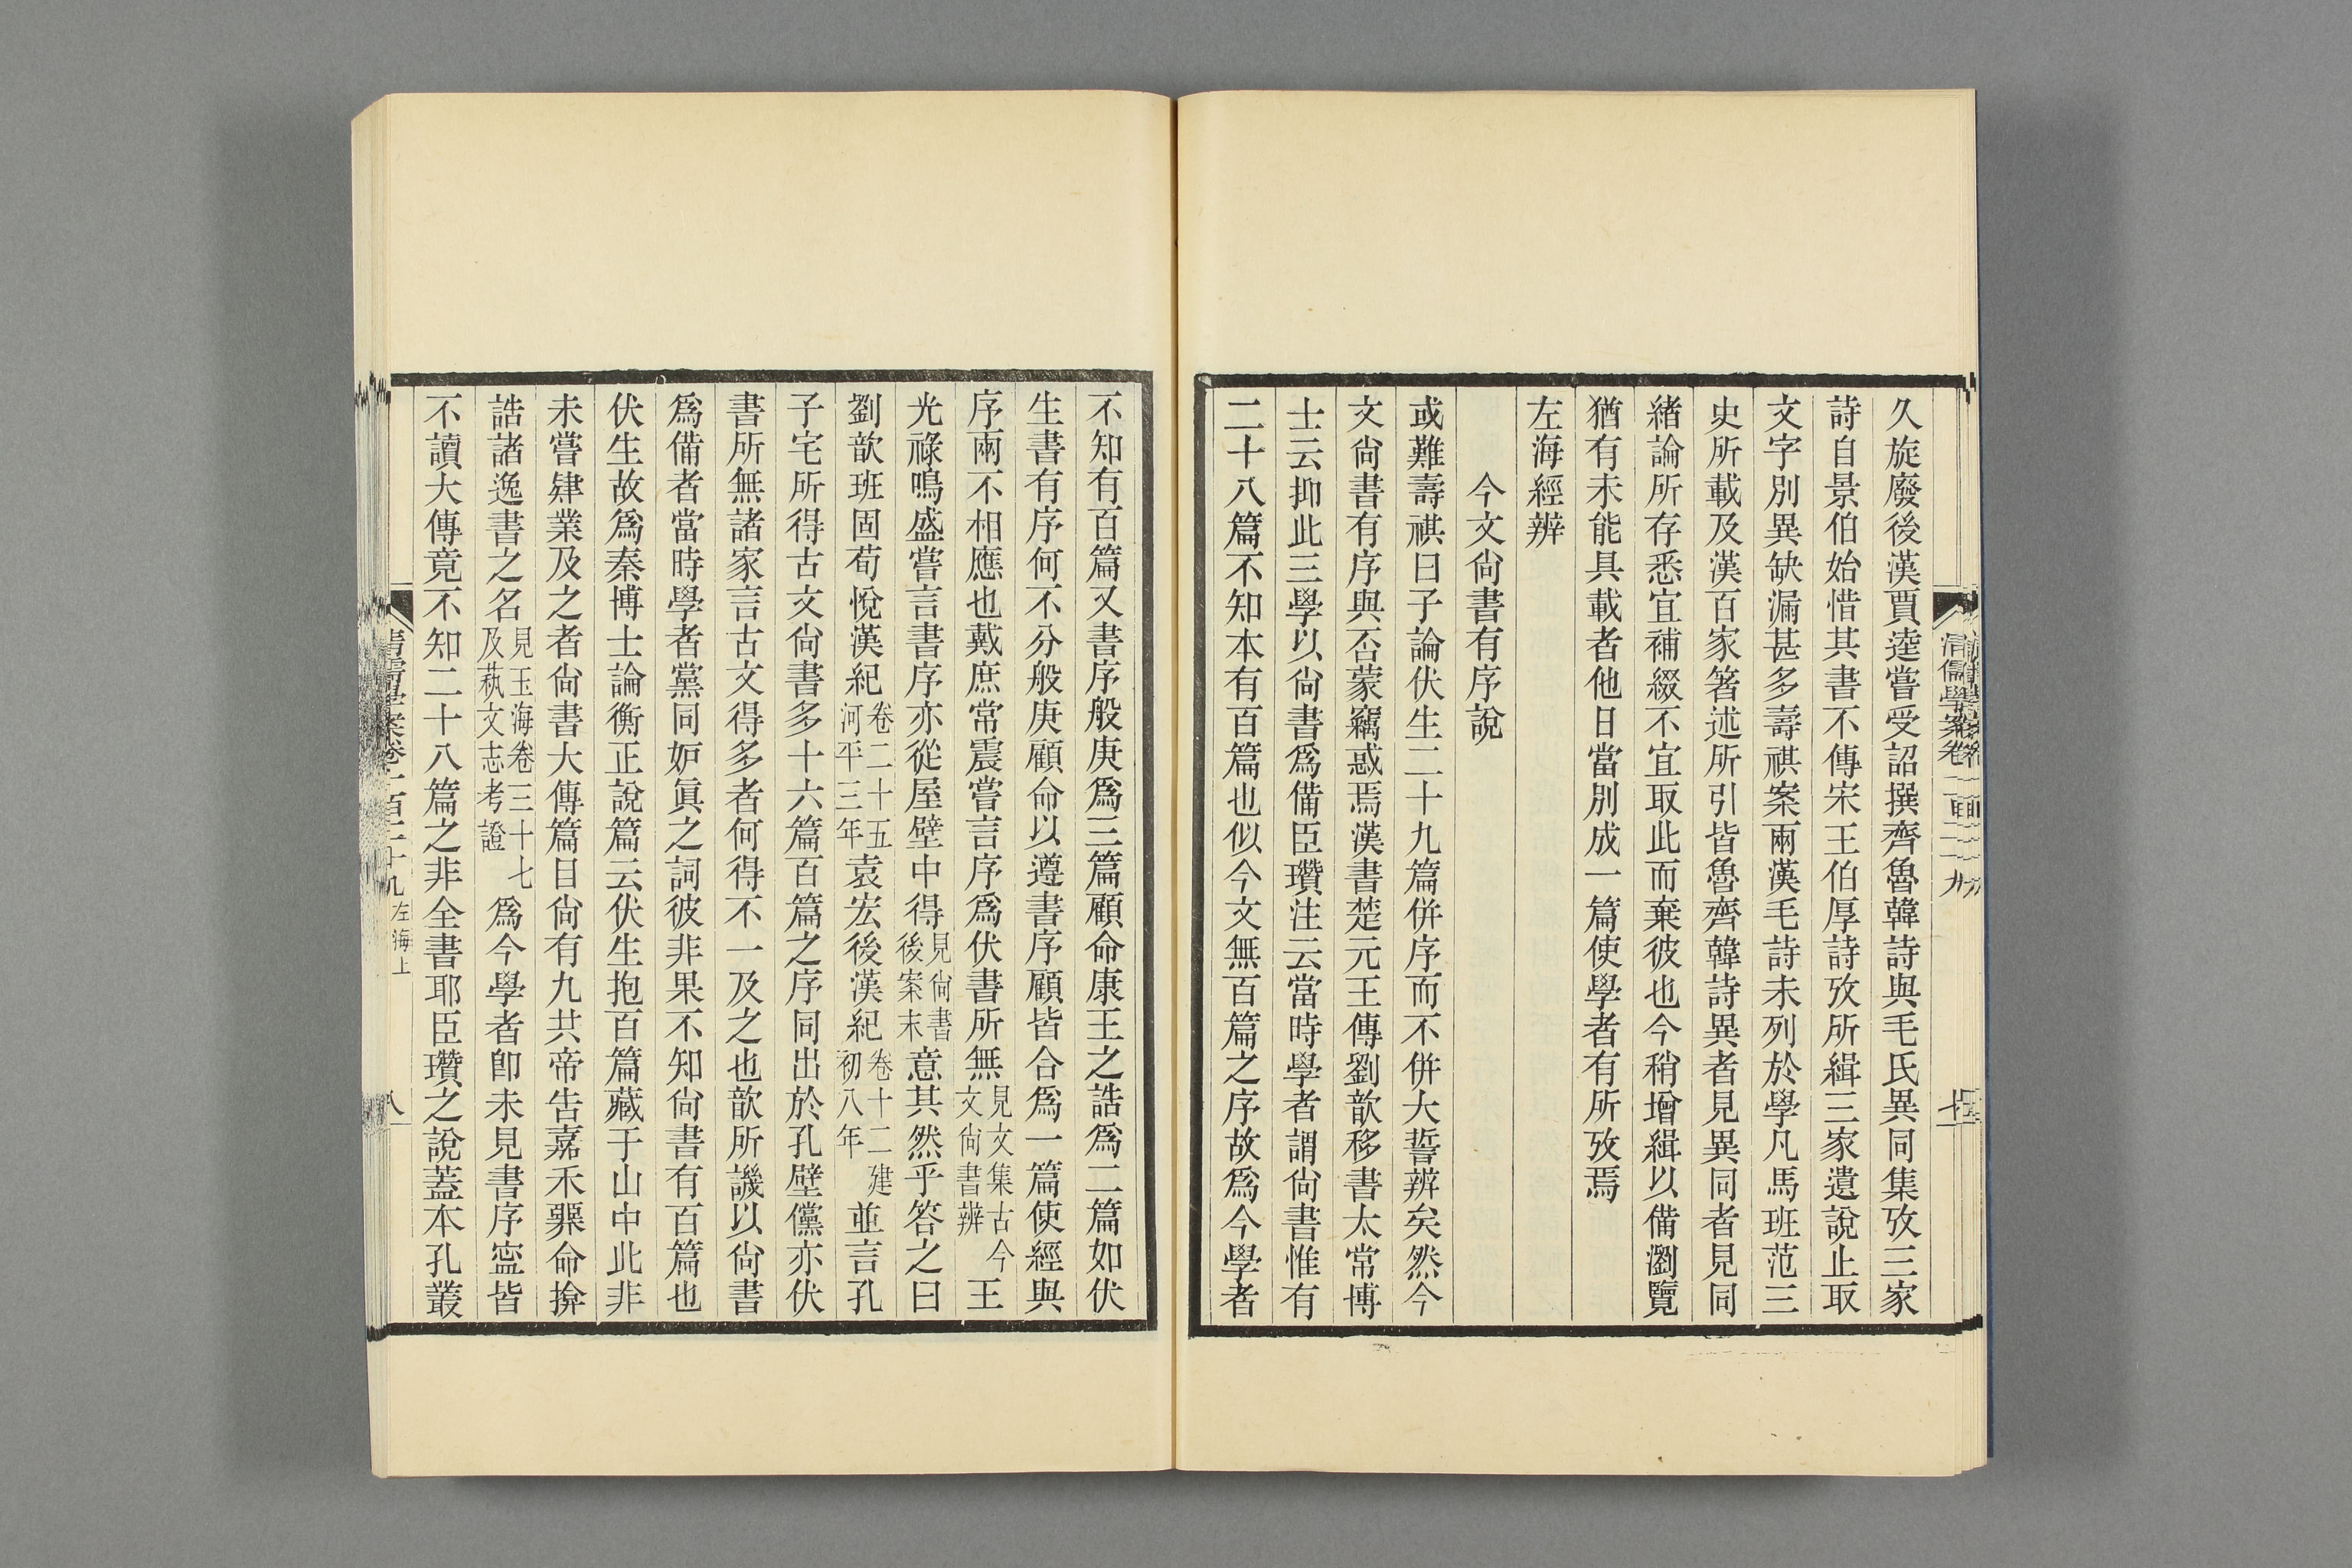 久旋廢後漢賈逵嘗受詔撰齊魯韓詩與毛氏異同集攷三家
詩自景伯始惜其書不傳宋王伯厚詩攷所緝三家遺說止取
文字別異缺漏甚多壽祺案兩漢毛詩未列於學凡馬班范三
史所載及漢百家箸述所引皆魯齊韓詩異者見異同者見同
緒論所存悉宜補綴不宜取此而棄彼也今稍增緝以備瀏覽
猶有未能具載者他日當別成一篇使學者有所攷焉
左海經辨
今文尙書有序說
或難壽祺曰子論伏生二十九篇併序而不併大誓辨矣然今
文尙書有序與否蒙竊惑焉漢書楚元王傳劉歆移書太常博
士云抑此三學以尙書爲備臣瓚注云當時學者謂尙書惟有
二十八篇不知本有百篇也似今文無百篇之序故爲今學者
不知有百篇又書序般庚爲三篇顧命康王之誥爲二篇如伏
生書有序何不分般庚顧命以遵書序顧皆合爲一篇使經與
序兩不相應也戴庶常震嘗言序爲伏書所無見文集古今文尙書辨王
光祿鳴盛嘗言書序亦從屋壁中得見尙書後案末意其然乎答之曰
劉歆班固荀悅漢紀卷二十五河平三年袁宏後漢紀卷十二建初八年並言孔
子宅所得古文尙書多十六篇百篇之序同出於孔壁儻亦伏
書所無諸家言古文得多者何得不一及之也歆所譏以尙書
爲備者當時學者黨同妒眞之詞彼非果不知尙書有百篇也
伏生故爲秦博士論衡正說篇云伏生抱百篇藏于山中此非
未嘗肄業及之者尙書大傳篇目尙有九共帝告嘉禾臩命揜
誥諸逸書之名見玉海卷三十七及蓺文志考證爲今學者卽未見書序寍皆
不讀大傳竟不知二十八篇之非全書耶臣瓚之說蓋本孔叢
清儒學案卷一百二十九 左海上
八